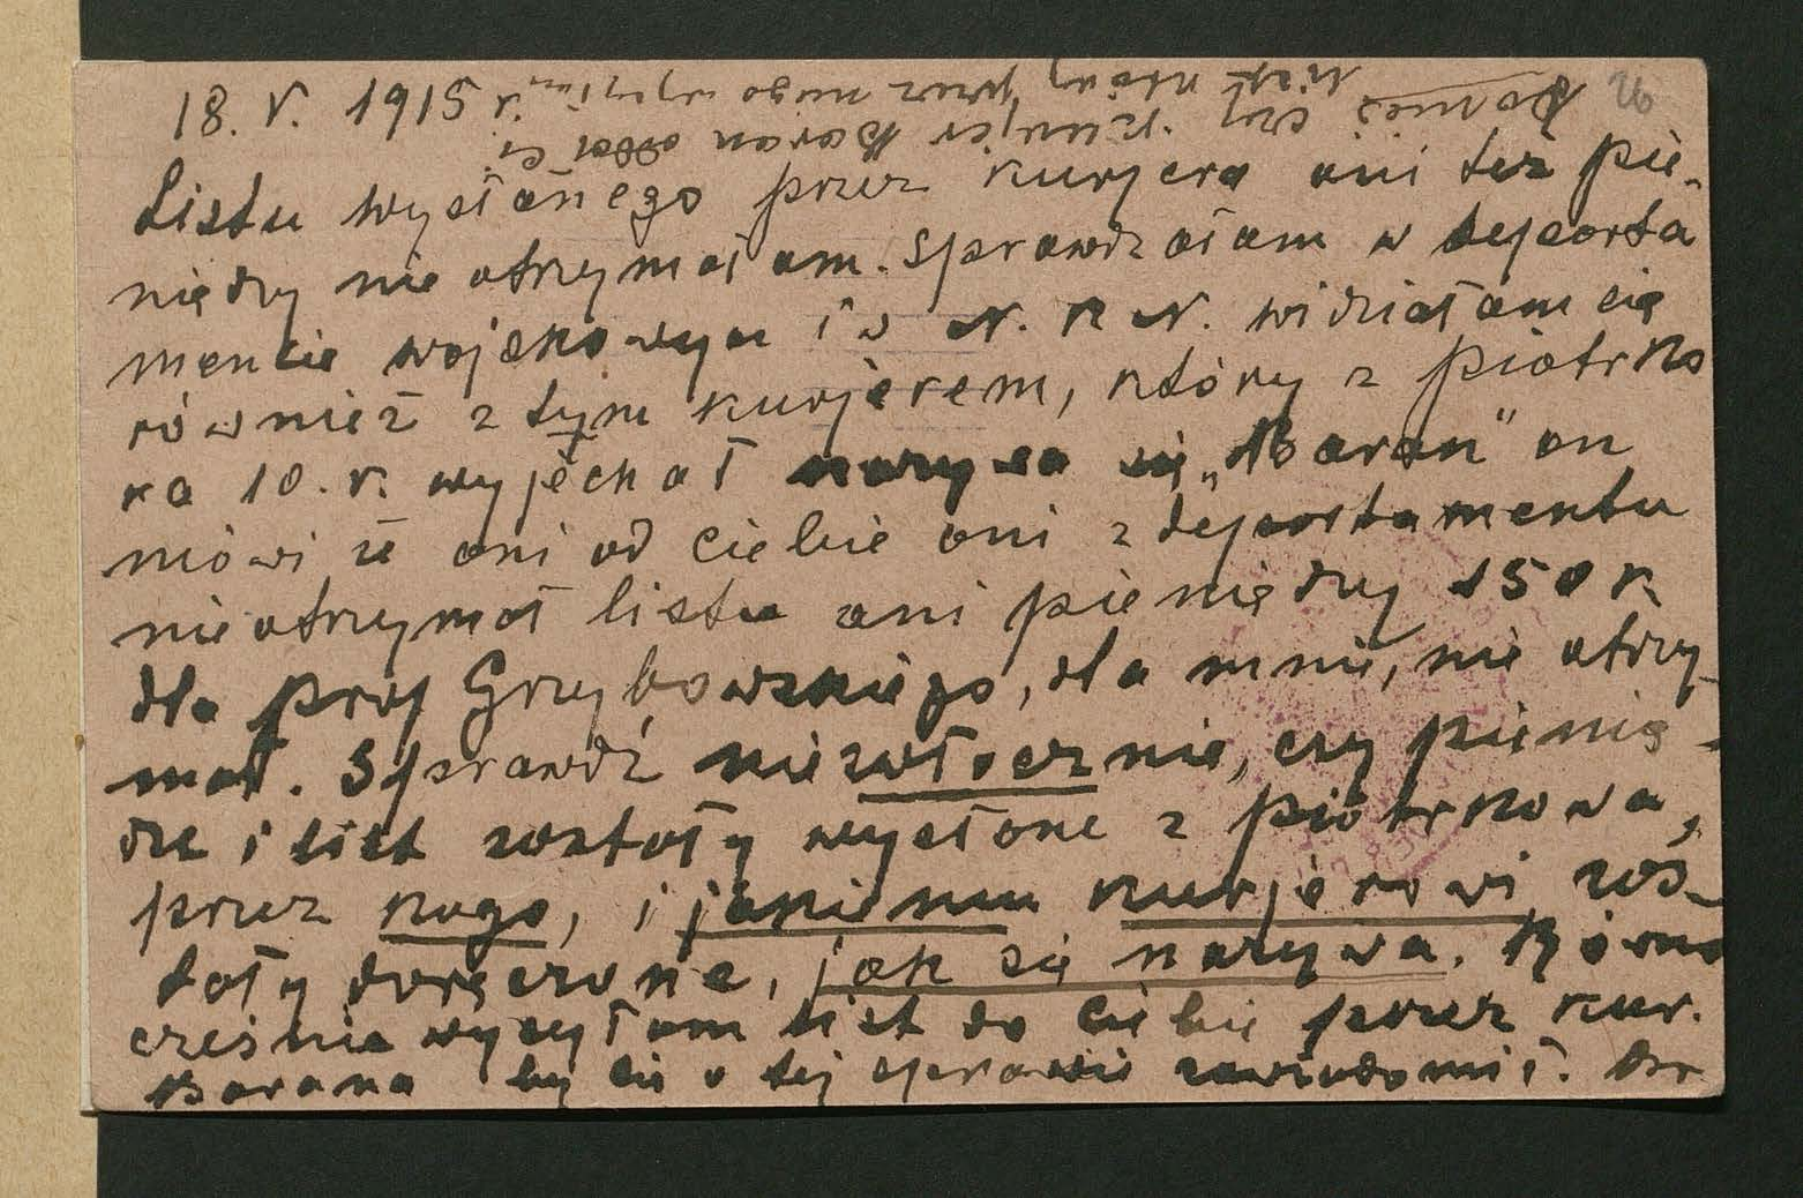 26
18. V. 1915 r.
Listu wysłanego przez kurjera ani też pie-
niędzy nie otrzymałam. Sprawdzałam w departa
mencie wojskowym i w N. K. N. widziałam się
również z tym kurjerem, który z Piotrko
wa 10. V. wyjechał nazywa się „Baran" on
mówi że ani od ciebie ani z departamentu
nie otrzymał listu ani pieniędzy 150 K
dla prof Grzybowskiego, dla mnie, nie otrzy-
mał. Sprawdź niezwłocznie, czy pienią-
dze i list zostały wysłane z Piotrkowa,
przez kogo, i jakiemu kurjerowi zos-
tały doręczone, jak się nazywa. Równo
cześnie wysyłam list do ciebie przez kur.
Barana by cię o tej sprawie zawiadomił. Dr
Donieś czy kurjer Baran oddał ci
list który przez niego wysyłam